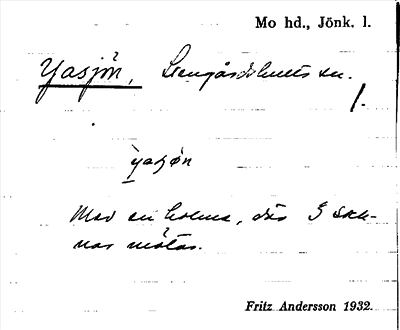 Mo hd., Jönk. l.
Yasjön, Stengårdshults sn.
1.
yasjøn
Med en holme, där 3 sock-
nar mötas.
Fritz Andersson 1932.